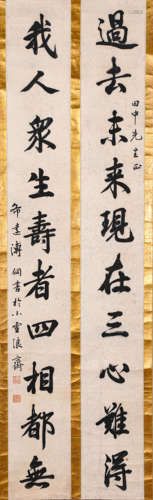 過去未来現在三心難得
田中先生正
我人衆生壽者四相都無
希達溥侗書於小雪浪齋